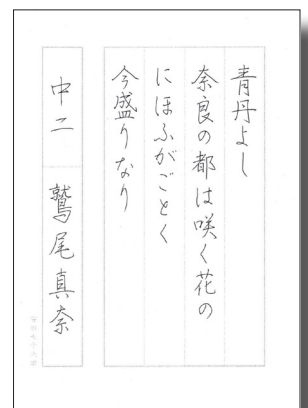 青丹よし
奈良の都は咲く花の
にほふがごとく
今盛りなり
中二 鷲尾真奈